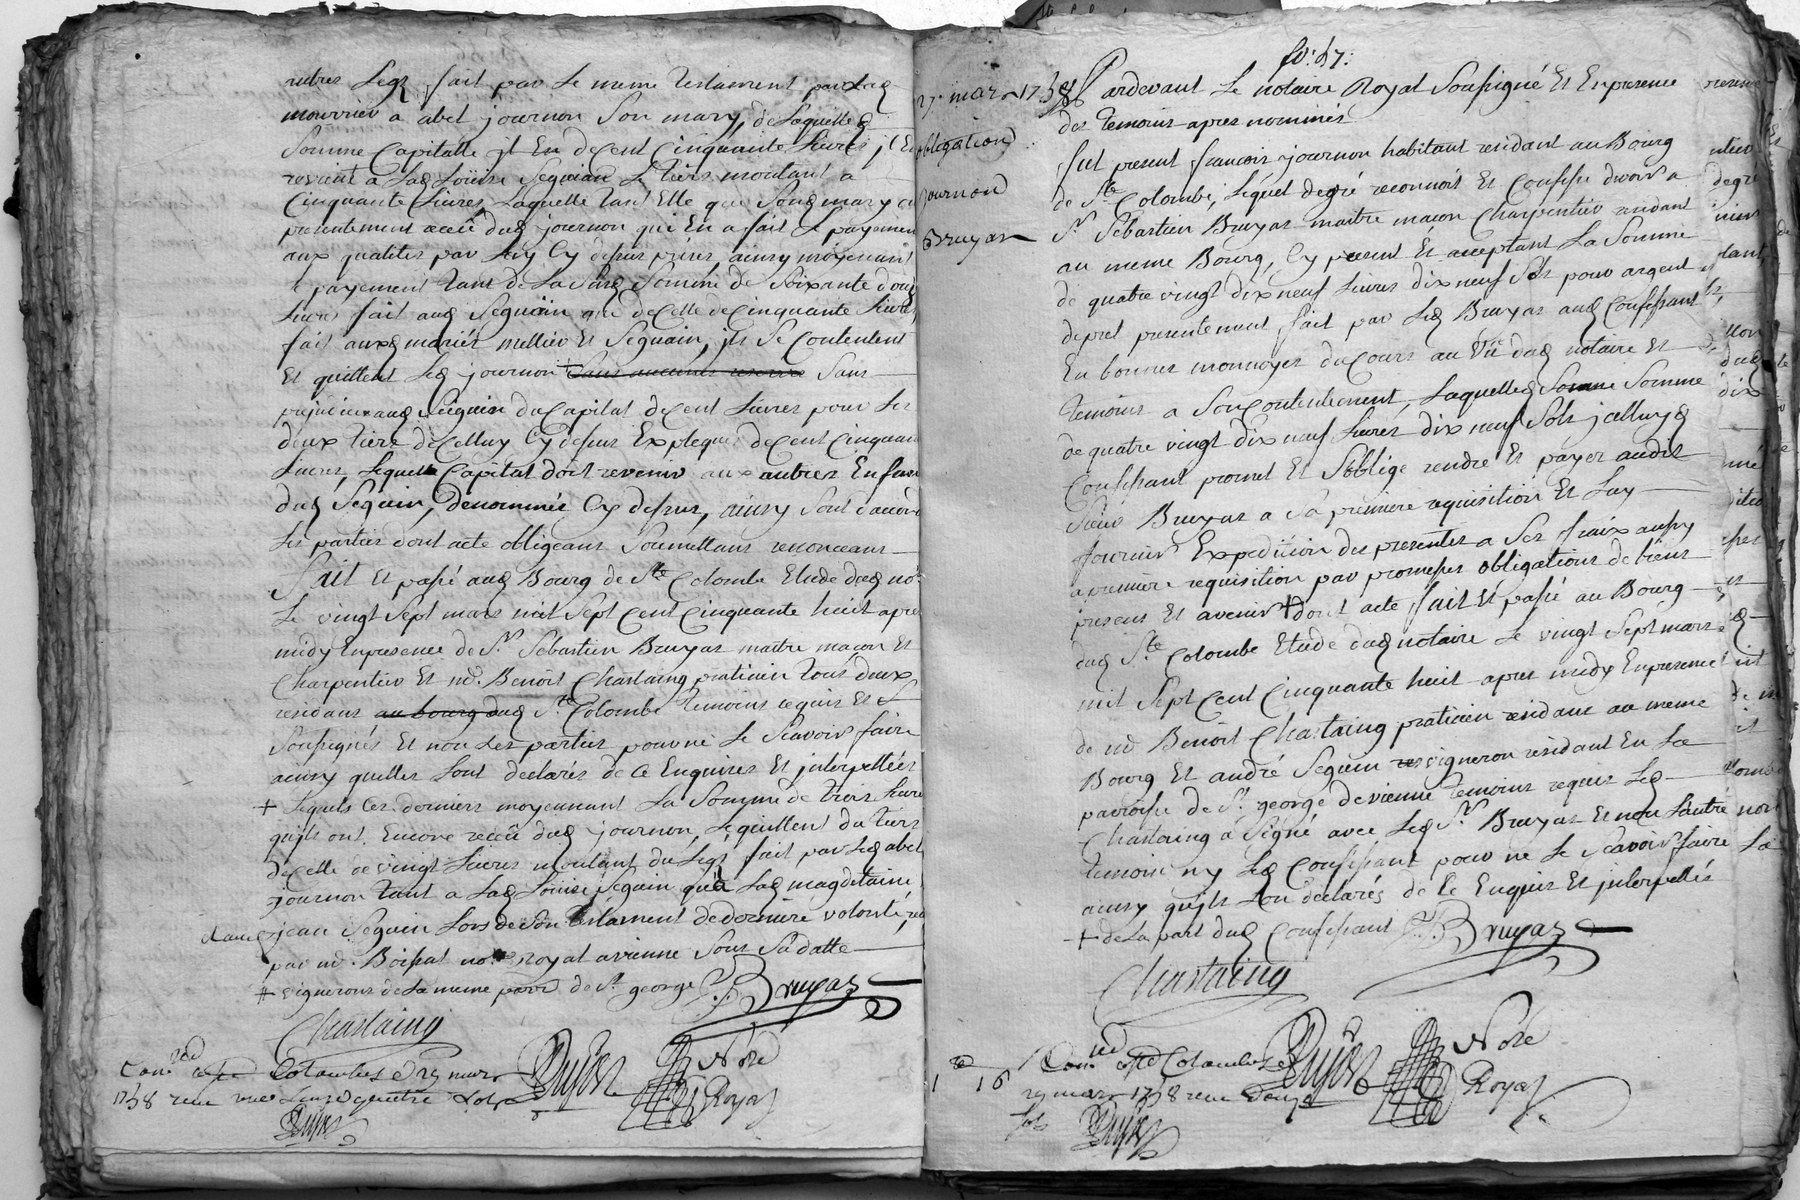 autres Legs fait par le meme testament par lad
mourrier a abel journon Son mary, de Laquelle
Somme Capitalle jl En de cent Cinquante Livres jl En
revient a Lad Loüise Seguin Le tiers montant a
Cinquante Livres, Laquelle tant Elle que Sond mary on
presentement receû dud journon qui En a fait le payement
aux qualités par luy Cy dessus prises, ainsy moyenant
le payement tant de La Susd Somme de Soixante douze
Livres fait aud Seguin que de Celle de Cinquante Livres
fait auxd mariés mellier et Seguin, jls Se Contentent
Et quittent Led journon sans aucunes reserves Sans
prejudice aud Seiguin du Capital de Cent Livres pour Les
deux tiers de Celluy Cy dessus Expliqué de Cent Cinquante
Livres, Lequel Capital doit revenir aux autres Enfans
dud Seguin, denommés Cy dessus, ainsy Sont d'accord
Les parties dont acte obligeans Soumettans renonceans
fait Et passé aud Bourg de Ste Colombe Etude dud nore
Le vingt Sept mars mil Sept Cent Cinquante huit apres
midy En presence de Sr Sebastien Bruyas maitre maçon Et
Charpentier Et md. Benoit Chastaing praticien tous deux
residans au bourg dud Ste Colombe temoins requis Et
Soussignés Et non Les parties pour ne Le Scavoir faire
ainsy quelles Lont declarés de ce Enquises Et jnterpellées
+ Lequels Ces derniers moyennant La Somme de trois Livres
quils ont Encore receû dud journon, Le quittent du tiers
de celle de vingt Livres montant du Legs fait par Led abel
journon tant a Lad Loüise Seguin qu'a Lad magdelaine
jean Seguin Lors de Son testament de derniere volonté, receu
par md. Boissat nore royal a vienne Sous Sa datte
‡ vignerons de La meme parre de St george Bruyas
Chastaing
Dujon Nore Royal
Con a Ste Colombes Le 29 mars
1758 receu
Dujon
fo: 47:
27. mars 1758
obligation
journon
Bruyas
Pardevant Le notaire Royal Soussigné Et En presence
des temoins apres nommés
fut present francois journon habitant residant au Bourg
de Ste Colombe, Lequel de gré reconnoit Et Confesse devoir a
Sr Sebastien Bruyas maitre maçon Charpentier residant
au meme Bourg, Cy present Et acceptant La Somme
de quatre vingt dix neuf Livres dix neuf Sols pour argent
de pret presentement fait par Led Bruyas aud Confessant
En bonnes monnoyes du Cours au Vû dud notaire Et
temoins a Son Contentement, Laquelled Somme Somme
de quatre vingt dix neuf Livres dix neuf Sols jcelluyd
Confessant promet Et S'oblige rendre Et payer audit
Sieur Bruyas a Sa premiere requisition Et Luy
fournir Expedition des presentes a Ses fraix aussy
a premiere requisition par promesses obligations de biens
presens Et avenir + dont acte fait Et passé au Bourg
dud Ste Colombe Etude dud notaire Le vingt Sept mars
mil Sept Cent Cinquante huit apres midy En presence
de md Benoit Chastaing praticien residant au meme
Bourg Et andré Seguin vigneron residant En La
parroisse de St george de vienne temoins requis Led
Chastaing a Signé avec Led Sr Bruyas Et non L'autre
temoin ny Led Confessant pour ne Le Scavoir faire
ainsy quils Lon declarés de Ce Enquis Et jnterpellés
+ de La part dud Confessant Bruyas
Chastaing
Dujon Nore Royal
Con a Ste Colombes Le
29 mars 1758 receu douze
Sols Dujon